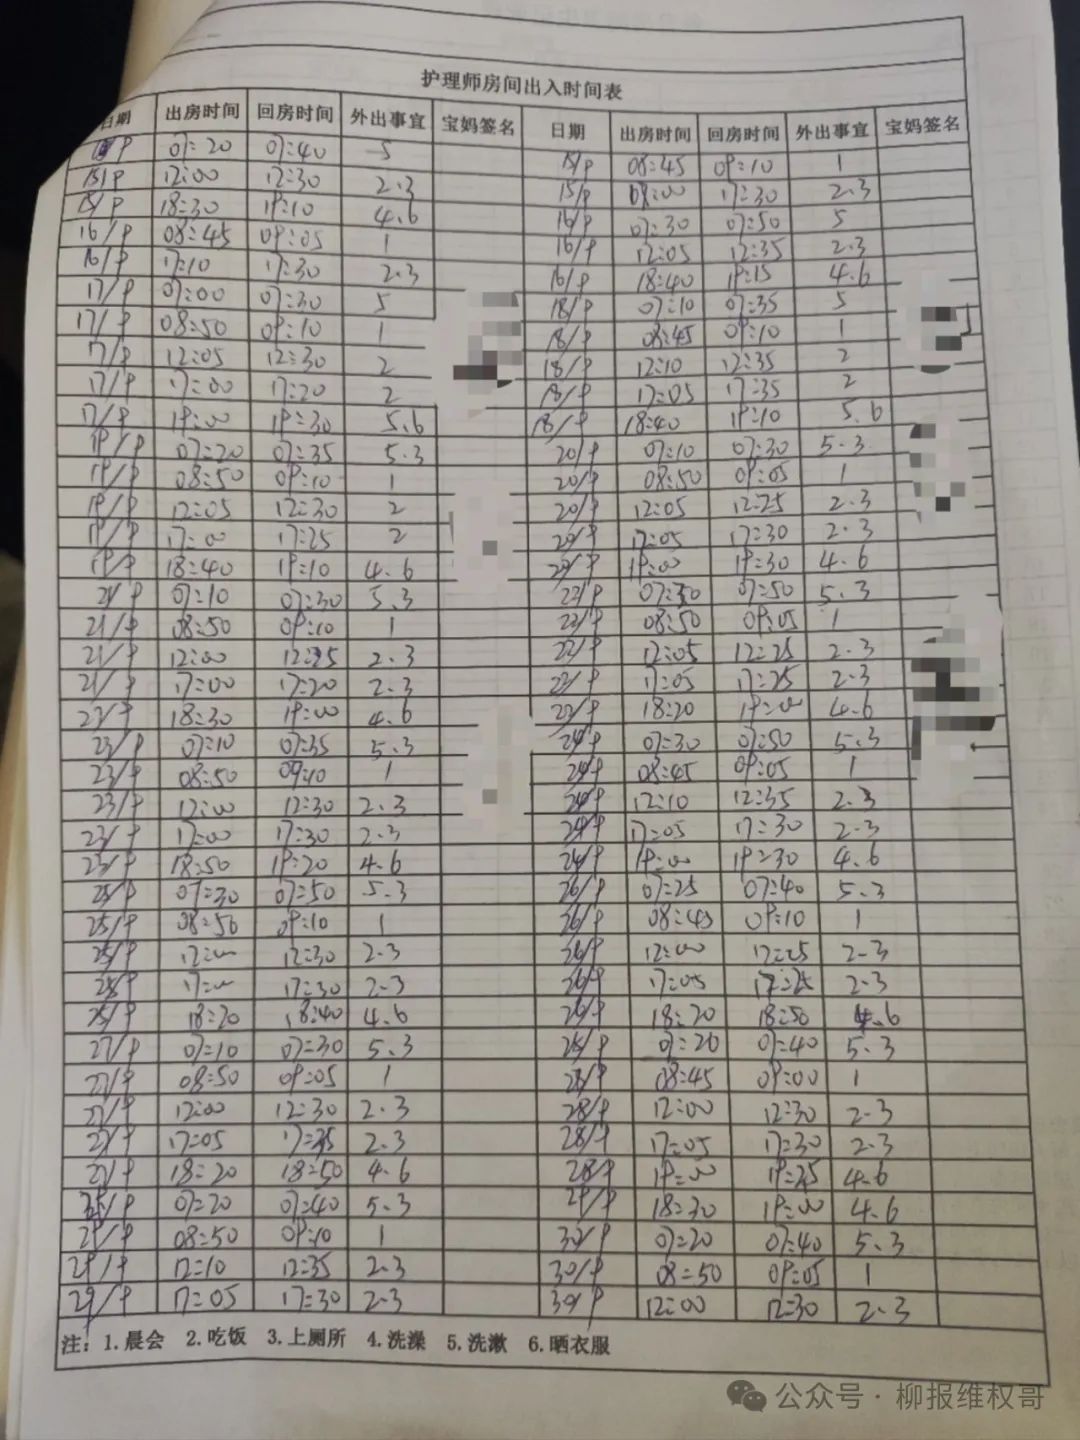 护理师房间出入时间表
日期 出房时间 回房时间 外出事宜 宝妈签名 日期 出房时间 回房时间 外出事宜 宝妈签名
07:20 07:40 5 15/9 08:45 09:10 1
15/9 12:00 12:30 2.3 15/9 17:30 2.3
15/9 18:30 19:10 4.6 16/9 07:30 07:50 5
16/9 08:45 09:05 1 16/9 12:05 12:35 2.3
16/9 17:10 17:30 2.3 16/9 18:40 19:15 4.6
17/9 07:00 07:30 5 18/9 07:10 07:35 5
17/9 08:50 09:10 1 18/9 08:45 09:10 1
17/9 12:05 12:30 2 18/9 12:10 12:35 2
17/9 17:00 17:20 2 18/9 17:05 17:35 2
17/9 19:00 19:30 5.6 18/9 18:40 19:10 5.6
19/9 07:20 07:35 5.3 20/9 07:10 07:30 5.3
19/9 08:50 09:10 1 20/9 08:50 09:05 1
19/9 12:05 12:30 2 20/9 12:05 12:25 2.3
19/9 17:00 17:25 2 20/9 17:05 17:30 2.3
19/9 18:40 19:10 4.6 20/9 19:00 19:30 4.6
21/9 07:10 07:30 5.3 22/9 07:30 07:50 5.3
21/9 08:50 09:10 1 22/9 08:50 09:05 1
21/9 12:00 12:25 2.3 22/9 12:05 12:25 2.3
21/9 17:00 17:20 2.3 22/9 17:05 17:25 2.3
18:30 19:00 4.6 22/9 18:20 19:00 4.6
23/9 07:10 07:35 5.3 24/9 07:30 07:50 5.3
23/9 08:50 09:10 1 24/9 08:45 09:05 1
23/9 12:00 12:30 2.3 24/9 12:10 12:35 2.3
23/9 17:00 17:30 2.3 24/9 17:05 17:30 2.3
23/9 18:50 19:20 4.6 24/9 19:00 19:30 4.6
25/9 07:30 07:50 5.3 26/9 07:25 07:40 5.3
25/9 08:50 09:10 1 26/9 08:45 09:10 1
25/9 12:00 12:30 2.3 26/9 12:00 12:25 2.3
25/9 17:00 17:30 2.3 26/9 17:05 17:25 2.3
25/9 18:20 18:40 4.6 26/9 18:20 18:50 4.6
27/9 07:10 07:30 5.3 28/9 07:20 07:40 5.3
27/9 08:50 09:05 1 28/9 08:45 09:00 1
27/9 12:00 12:30 2.3 28/9 12:00 12:30 2.3
27/9 17:05 17:35 2.3 28/9 17:05 17:30 2.3
27/9 18:20 18:50 4.6 28/9 19:00 19:25 4.6
07:20 07:40 5.3 29/9 18:30 19:00 4.6
29/9 08:50 09:10 1 30/9 07:20 07:40 5.3
29/9 12:10 12:35 2.3 30/9 08:50 09:05 1
29/9 17:05 17:30 2.3 30/9 12:00 12:30 2.3
注：1.晨会 2.吃饭 3.上厕所 4.洗澡 5.洗漱 6.晒衣服
公众号·柳报维权哥